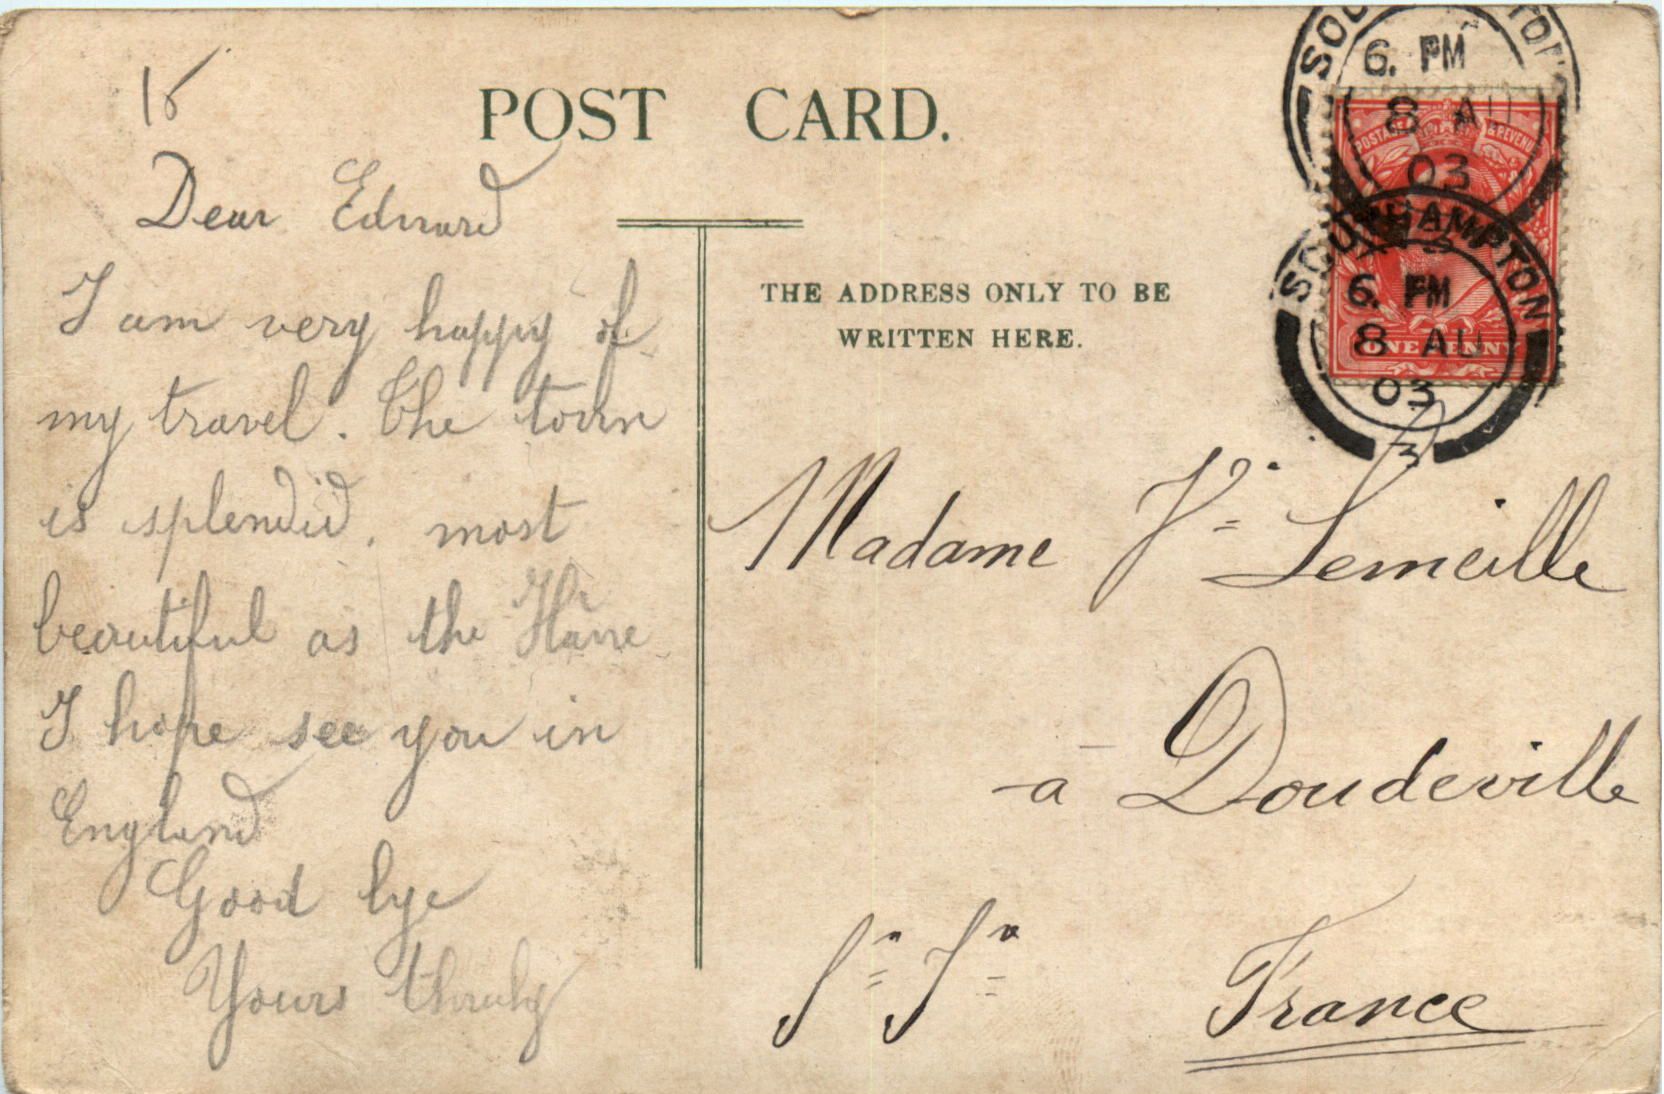 15
POST CARD.
Dear Edward
I am very happy of
my travel. The town
is splendid. most
beautiful as the Havre
I hope see you in
England
Good bye
Yours thruly
THE ADDRESS ONLY TO BE
WRITTEN HERE.
Madame Vᵉ Lemeille
a Doudeville
Sⁿᵉ Iʳᵉ
France
SOUTHAMPTON
6. PM
8 AU
03
SOUTHAMPTON
6. PM
8 AU
03
3
POSTAGE & REVENUE
ONE PENNY